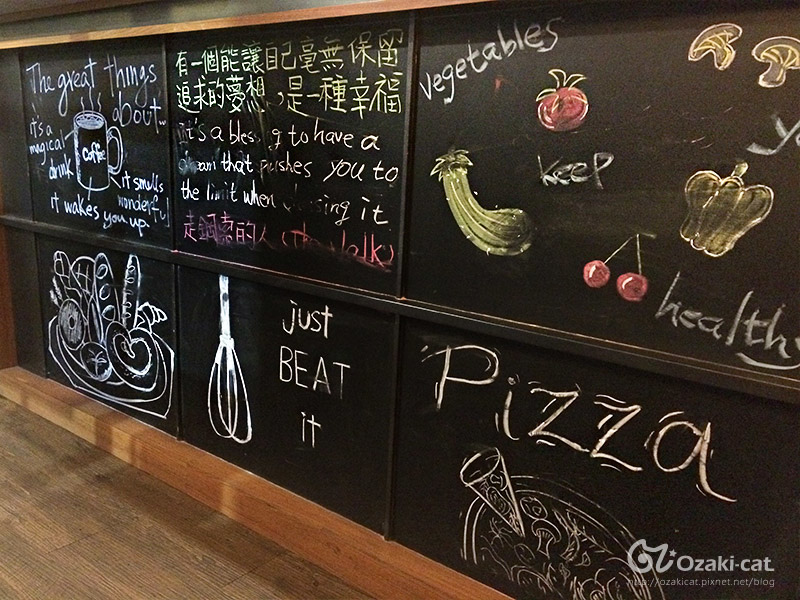 The great things
about...
it's a
magical
drink
Coffee
it smells
wonderful
it wakes you up
有一個能讓自己毫無保留
追求的夢想，是一種幸福
it's a to have a
that pushes you to
the limit when it
走鋼索的人 (The Walk)
vegetables
keep
healthy
just
BEAT
it
Pizza
Ozaki-cat
http://ozakicat.pixnet.net/blog